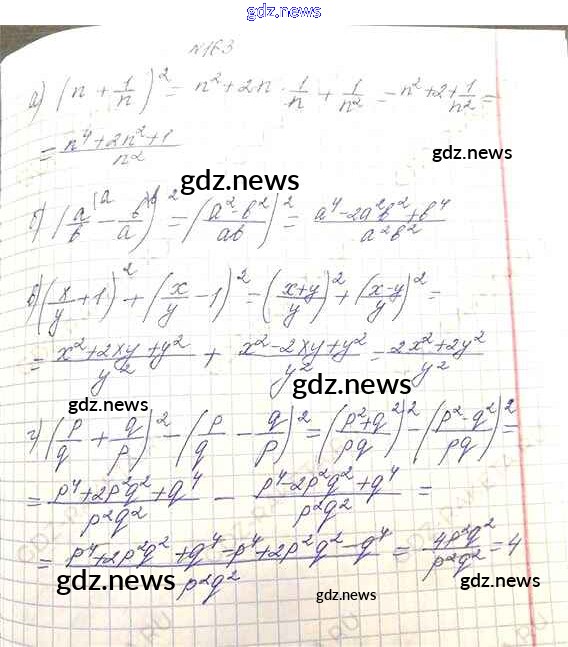 gdz.news
№163
а) (n + 1/n)² = n² + 2n · 1/n + 1/n² = n² + 2 + 1/n² =
= (n⁴ + 2n² + 1)/n²
gdz.news
gdz.news
б) (a/в ^(a − в/a ^(в)² = ((a² - в²)/aв)² = (a⁴ − 2a²в² + в⁴)/a²в²
в) (x/y + 1)² + (x/y − 1)² = ((x+y)/y)² + ((x-y)/y)² =
= (x² + 2xy + y²)/y² + (x² − 2xy + y²)/y² = (2x² + 2y²)/y²
gdz.news
gdz.news
г) (p/q + q/p)² − (p/q − q/p)² = ((p² + q²)/pq)² − ((p² - q²)/pq)² =
= (p⁴ + 2p²q² + q⁴)/p²q² − (p⁴ − 2p²q² + q⁴)/p²q² =
= (p⁴ + 2p²q² + q⁴ − p⁴ + 2p²q² − q⁴)/p²q² = 4p²q²/p²q² = 4
gdz.news
gdz.news
gdz.news